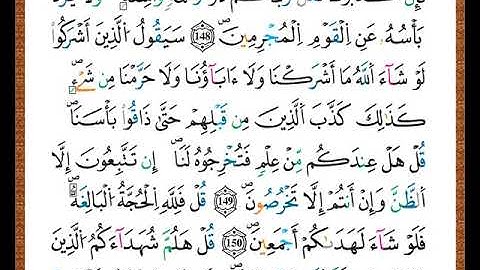 بَأْسُهُ عَنِ اِ۬لْقَوْمِ اِ۬لْمُجْرِمِينَۖ 148 سَيَقُولُ اُ۬لذِينَ أَشْرَكُواْ
لَوْ شَآءَ اَ۬للَّهُ مَآ أَشْرَكْنَا وَلَآ ءَابَآؤُنَا وَلَا حَرَّمْنَا مِن شَےْءٖۖ
كَذَٰلِكَ كَذَّبَ اَ۬لذِينَ مِن قَبْلِهِمْ حَتَّىٰ ذَاقُواْ بَأْسَنَاۖ
قُلْ هَلْ عِندَكُم مِّنْ عِلْمٖ فَتُخْرِجُوهُ لَنَآۖ إِن تَتَّبِعُونَ إِلَّا
اَ۬لظَّنَّ وَإِنْ أَنتُمْ إِلَّا تَخْرُصُونَۖ 149 قُلْ فَلِلهِ اِ۬لْحُجَّةُ اُ۬لْبَٰلِغَةُۖ
فَلَوْ شَآءَ لَهَدَىٰكُمْ أَجْمَعِينَۖ 150 قُلْ هَلُمَّ شُهَدَآءَكُمُ اُ۬لذِينَ